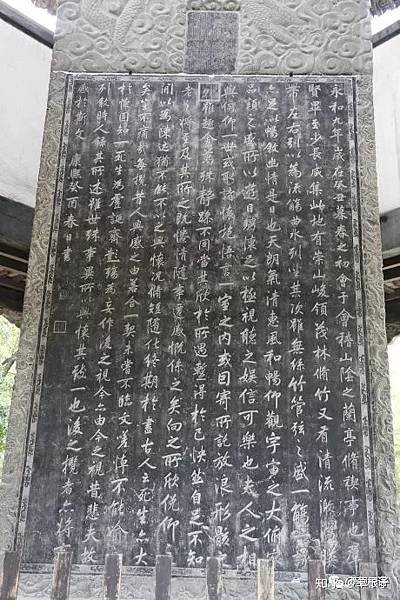 永和九年歲在癸丑暮春之初會于會稽山陰之蘭亭脩禊事也羣
賢畢至少長咸集此地有崇山峻領茂林脩竹又有清流激湍
帶左右引以為流觴曲水列坐其次雖無絲竹管弦之盛一觴一詠
亦足以暢敘幽情是日也天朗氣清惠風和暢仰觀宇宙之大俯察
品類之盛所以遊目騁懷足以極視聽之娛信可樂也夫人之相
與俯仰一世或取諸懷抱悟言一室之內或因寄所託放浪形骸之
外雖趣舍萬殊靜躁不同當其欣於所遇暫得於己快然自足不知
老之將至及其所之既惓情隨事遷感慨係之矣向之所欣俛仰之
間以為陳迹猶不能不以之興懷況脩短隨化終期於盡古人云死生亦大
矣豈不痛哉每攬昔人興感之由若合一契未嘗不臨文嗟悼不能喻
之於懷固知一死生為虛誕齊彭殤為妄作後之視今亦由今之視昔悲夫故
列敘時人錄其所述雖世殊事異所以興懷其致一也後之攬者亦將有
感於斯文 康熙癸酉春日書
知乎